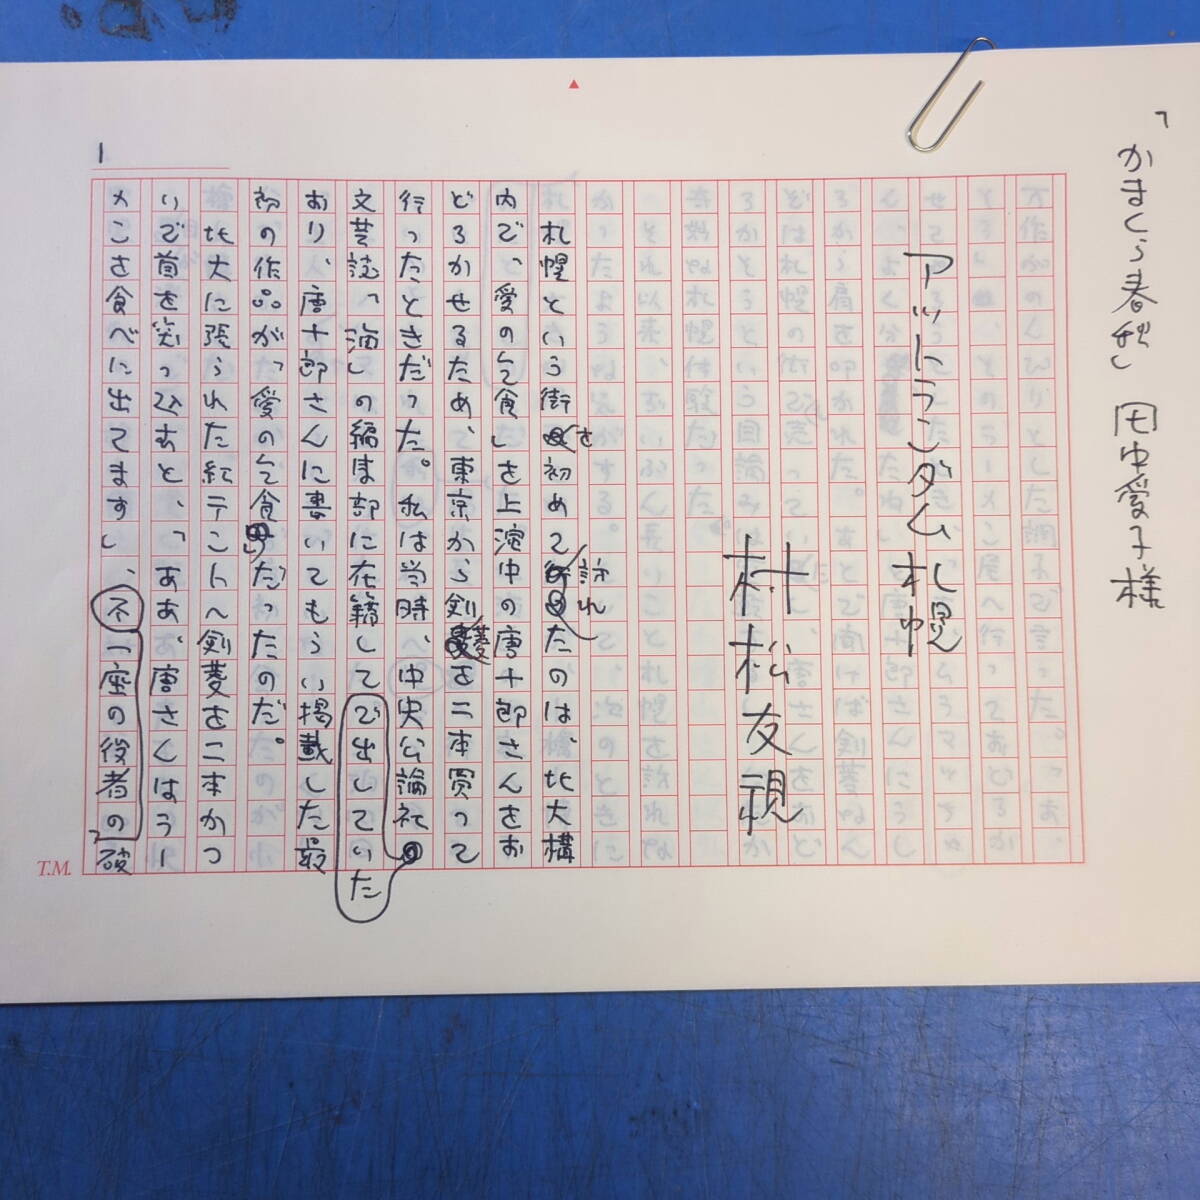 「かまくら春秋」田中愛子様
アットランダム札幌
村松友視
1
札幌という街を初めて訪れたのは、北大構
内で、愛の乞食」を上演中の唐十郎さんをお
どろかせるため、東京から剣菱を二本買って
行ったときだった。私は当時、中央公論社の
文芸誌「海」の編集部に在籍して で出していた
おり、唐十郎さんに書いてもらい掲載した最
初の作品が「愛の乞食」だったのだ。
北大に張られた紅テントへ剣菱を二本かつ
いで首を突っ込むと、「ああ、唐さんはラー
メンを食べに出てます」、不一座の役者の破
T.M.